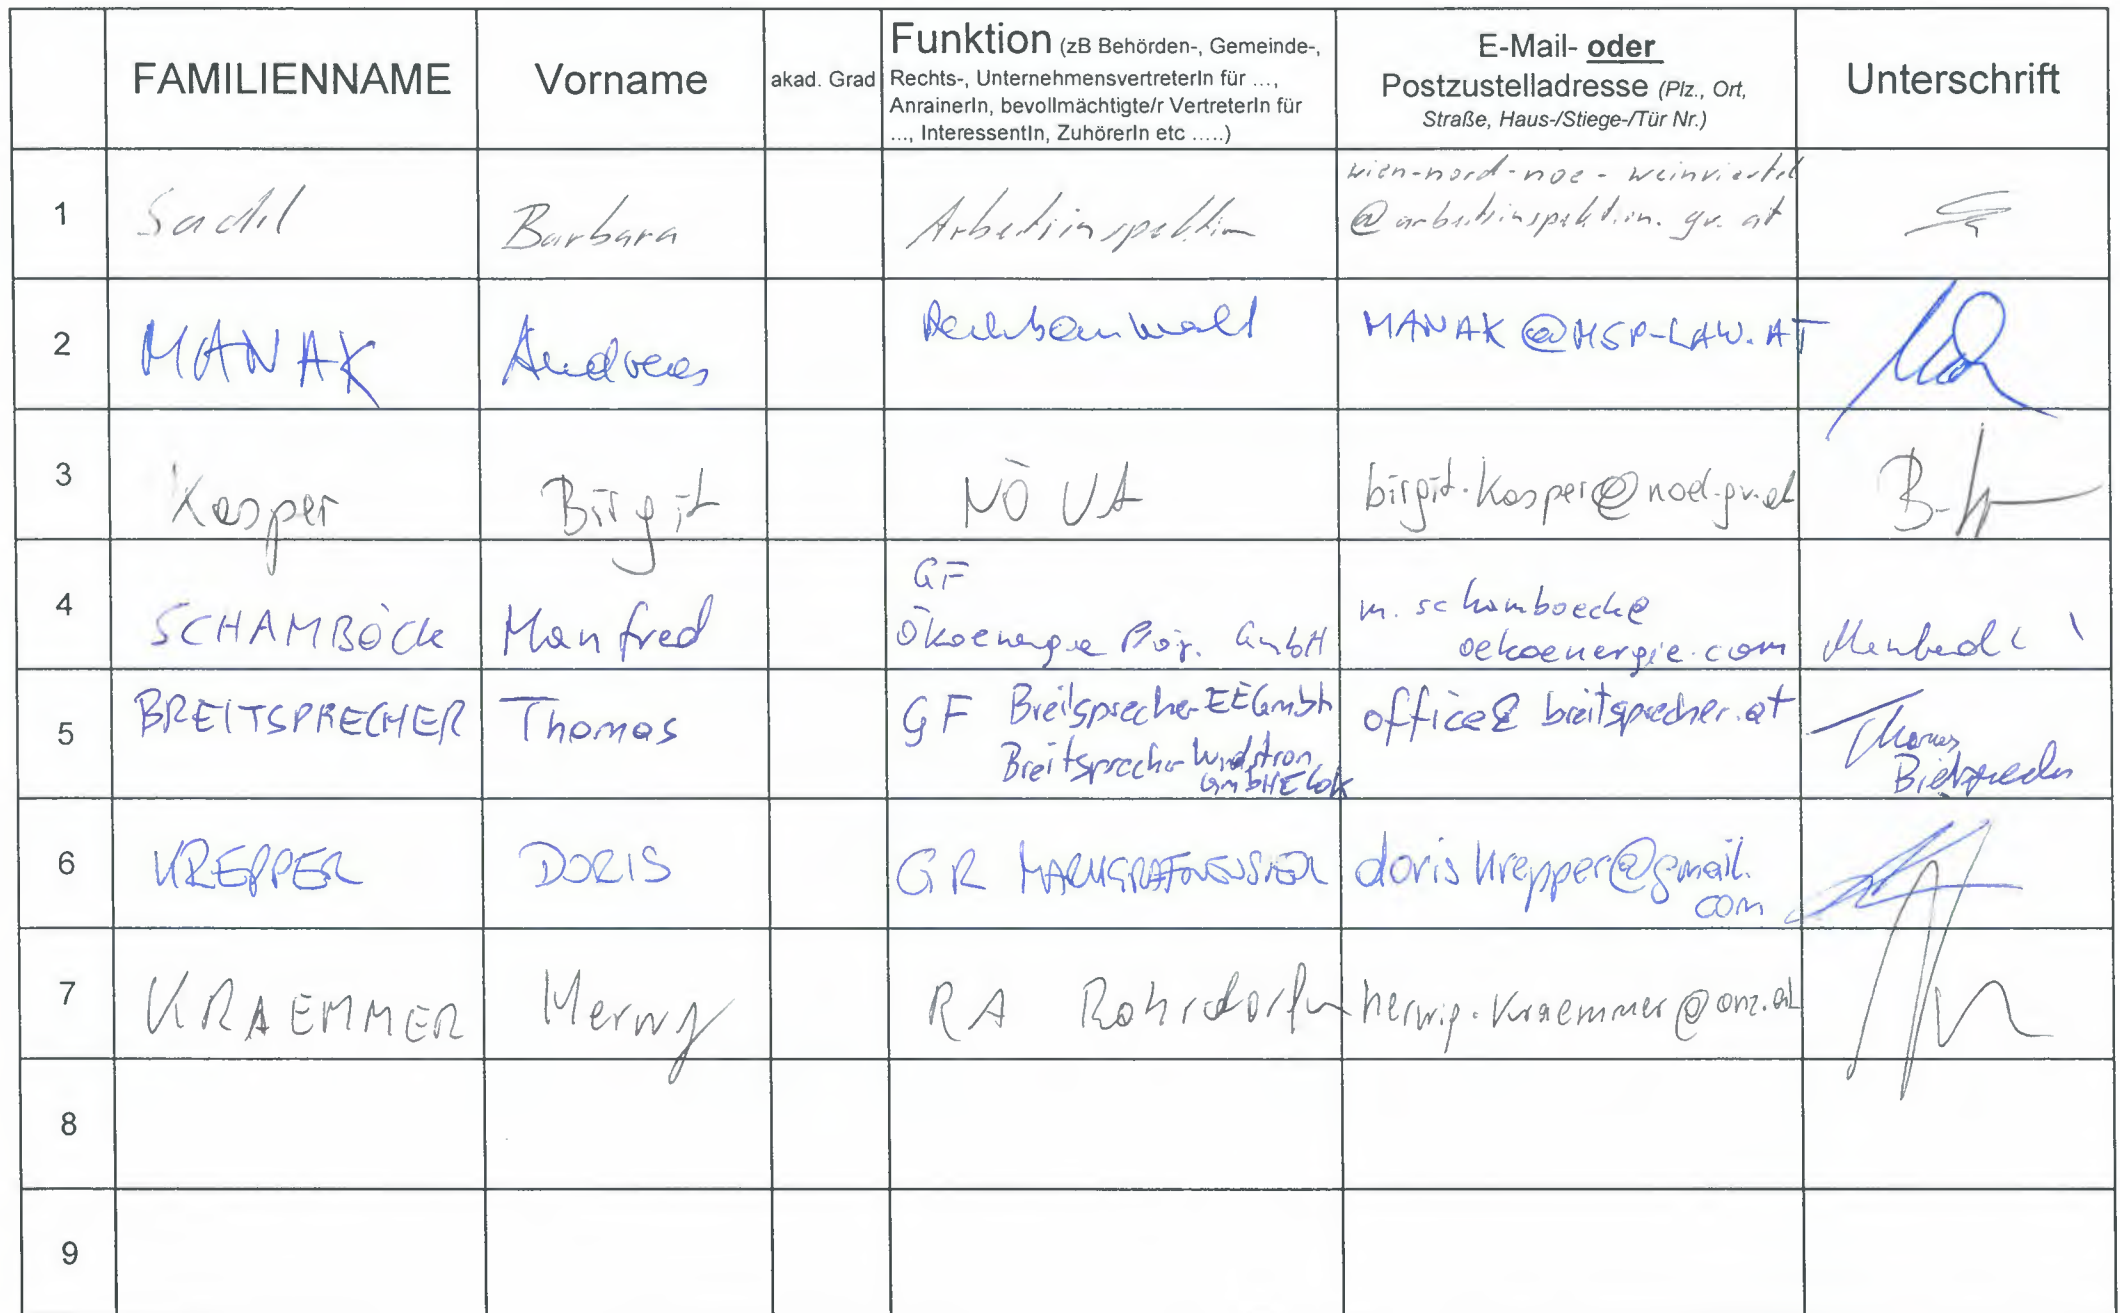 FAMILIENNAME Vorname akad. Grad Funktion (zB Behörden-, Gemeinde-,
Rechts-, UnternehmensvertreterIn für ...,
AnrainerIn, bevollmächtigte/r VertreterIn für
..., InteressentIn, ZuhörerIn etc .....)
E-Mail- oder
Postzustelladresse (Plz., Ort,
Straße, Haus-/Stiege-/Tür Nr.)
Unterschrift
1 Barbara Arbeitsinspektion
wien-nord-noe-weinviertel
@arbeitsinspektion.gv.at
2 MANAK Andreas Rechtsanwalt MANAK@MSP-LAW.AT
3 Kasper Birgit NÖ UA birgit.kasper@noel.gv.at
4 SCHAMBÖCK Manfred
GF
Ökoenergie Proj. GmbH
m.schamboeck@
oekoenergie.com
Manfred
5 BREITSPRECHER Thomas
GF Breitsprecher EE GmbH
Breitsprecher Windstrom
GmbH
office@breitsprecher.at
Thomas
Breitsprecher
6 KREPPER DORIS GR MARKGRAFNEUSIEDL
doriskrepper@gmail.
com
7 KRAEMMER Herwig RA Rohrdorfer herwig.kraemmer@onz.at
8
9